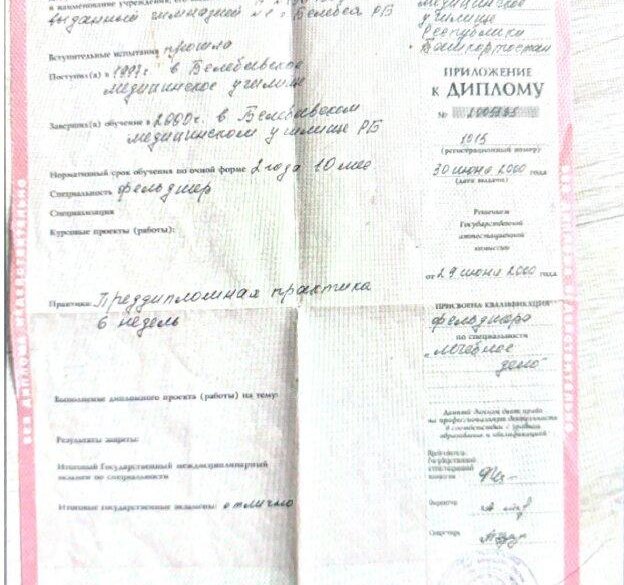 и наименование учреждения, его
выданный гимназией №1 г. Белебея РБ
Вступительные испытания прошла
Поступил(а) в 1997г. в Белебеевское
медицинское училище
Завершил(а) обучение в 2000г. в Белебеевском
медицинском училище РБ
Нормативный срок обучения по очной форме 2 года 10 мес
Специальность фельдшер
Специализация
Курсовые проекты (работы):
Практика: Преддипломная практика
6 недель
Выполнение дипломного проекта (работы) на тему:
Результаты защиты:
Итоговый Государственный междисциплинарный
экзамен по специальности
Итоговые государственные экзамены: отлично
медицинское
училище
Республики
Башкортостан
ПРИЛОЖЕНИЕ
к ДИПЛОМУ
№
1015
(регистрационный номер)
30 июня 2000 года
(дата выдачи)
Решением
Государственной
аттестационной
комиссии
от 29 июня 2000 года
ПРИСВОЕНА КВАЛИФИКАЦИЯ
фельдшера
по специальности
"лечебное
дело"
Данный диплом дает право
на профессиональную деятельность
в соответствии с уровнем
образования и квалификацией
Председатель
Государственной
аттестационной
комиссии
Директор
Секретарь
БЕЗ ДИПЛОМА НЕДЕЙСТВИТЕЛЬНО